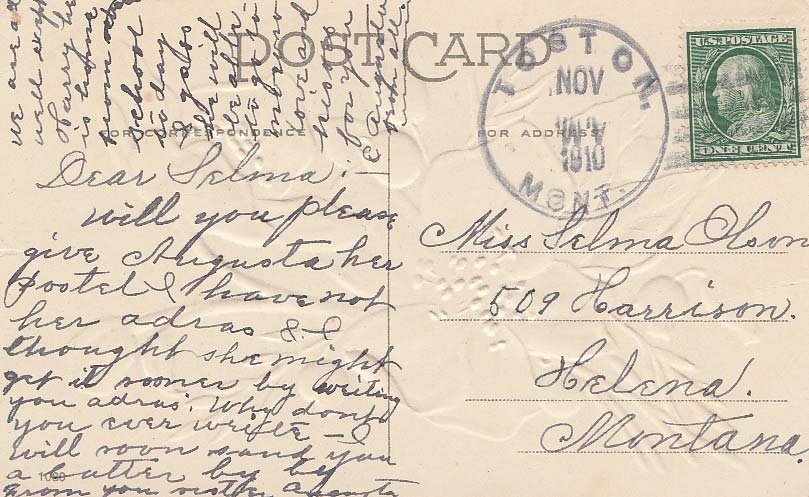 POST CARD
FOR CORRESPONDENCE
FOR ADDRESS
TOSTON,
NOV
1910
MONT.
U.S. POSTAGE
ONE CENT
Dear Selma:—
will you please
give Augusta her
Postel I have not
her adras & I
thought she might
get it sooner by writing
you adras. Why dont
you ever write — I
will soon send you
a batter by by
from you sister Augusta
we are
well
Harry
is home
from
school
to day
I gess
he will
be able
to go in
love and
kisses
for you
& Augusta
from all
Miss Selma Olson
509 Harrison.
Helena.
Montana.
1080